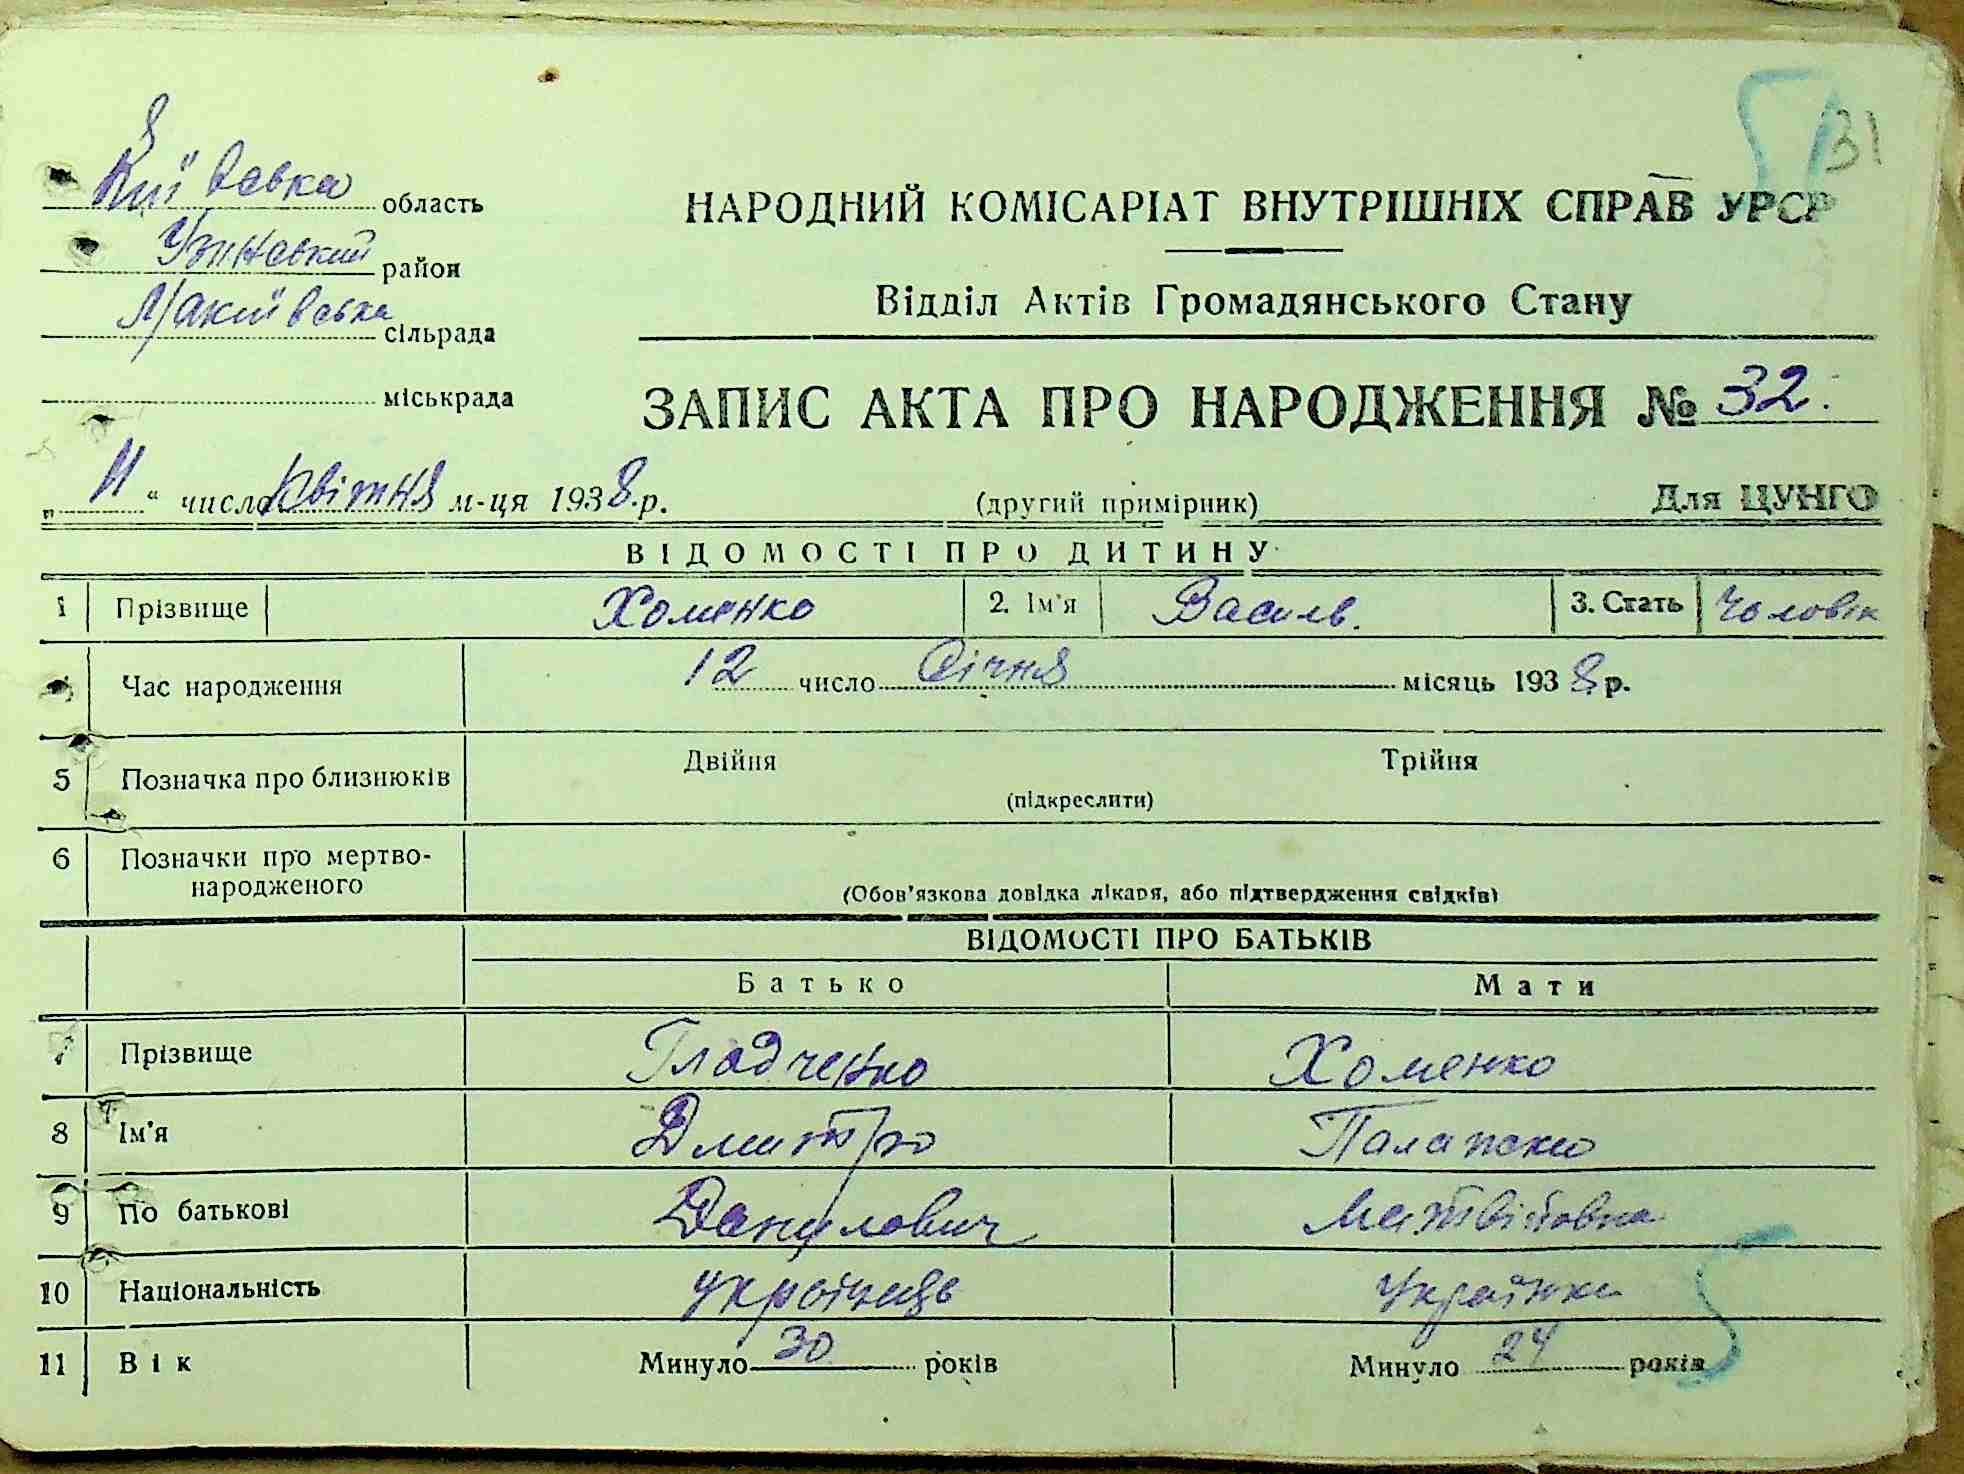 31
Київська область
Узинський район
Макіївська сільрада
міськрада
НАРОДНИЙ КОМІСАРІАТ ВНУТРІШНІХ СПРАВ УРСР
Відділ Актів Громадянського Стану
ЗАПИС АКТА ПРО НАРОДЖЕННЯ № 32.
„ 11 “ число квітня м-ця 1938 р. (другий примірник) Для ЦУНГО
ВІДОМОСТІ ПРО ДИТИНУ
1 Прізвище Хоменко 2. Ім'я Василь. 3. Стать Чоловік
Час народження 12 число Січня місяць 1938 р.
5 Позначка про близнюків Двійня Трійня
(підкреслити)
6 Позначки про мертво-
народженого
(Обов'язкова довідка лікаря, або підтвердження свідків)
ВІДОМОСТІ ПРО БАТЬКІВ
Батько Мати
7 Прізвище Гладченко Хоменко
8 Ім'я Дмитро
9 По батькові Данилович Матвіївна
10 Національність українець Українка
11 Вік Минуло 30 років Минуло 24 років